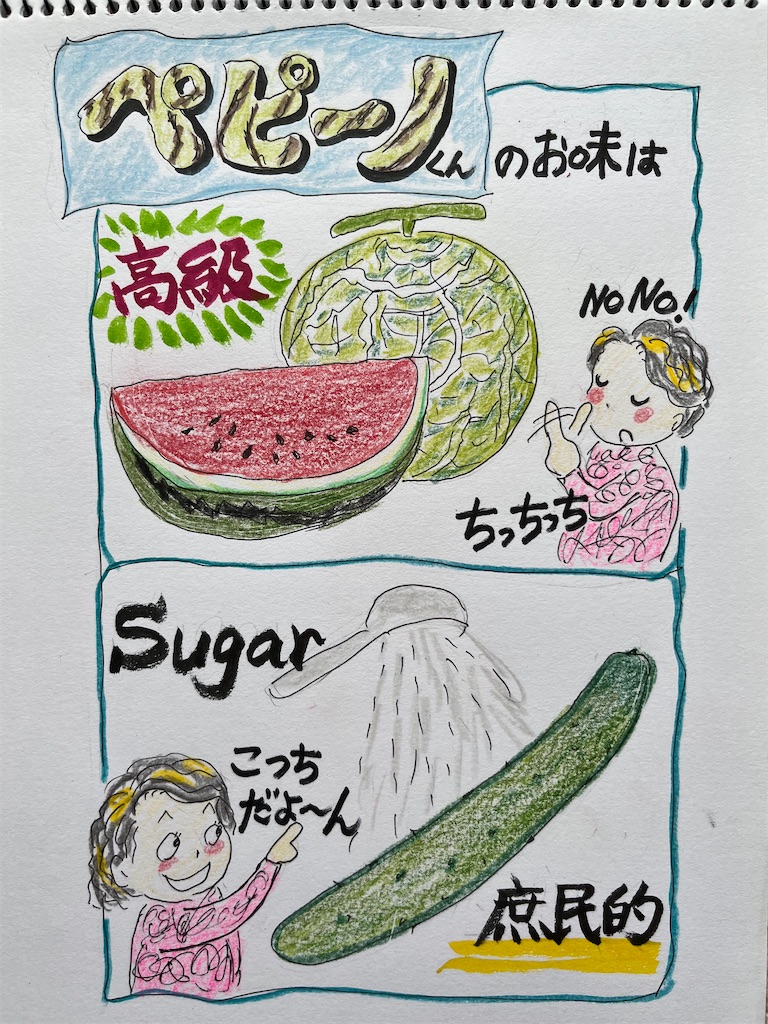 ペピーノくんのお味は
高級
NO NO!
ちっちっち
Sugar
こっち
だよ〜ん
庶民的